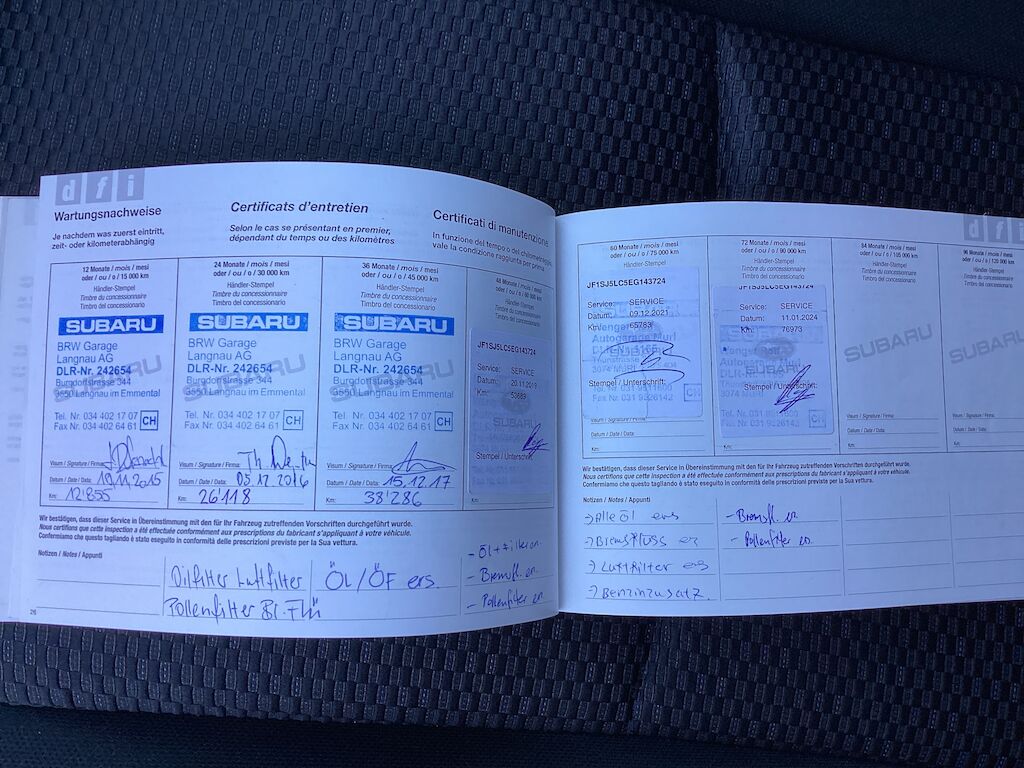 d f i
Wartungsnachweise
Je nachdem was zuerst eintritt,
zeit- oder kilometerabhängig
Certificats d'entretien
Selon le cas se présentant en premier,
dépendant du temps ou des kilomètres
Certificati di manutenzione
In funzione del tempo o del chilometraggio,
vale la condizione raggiunta per prima
12 Monate / mois / mesi
oder / ou / o / 15 000 km
Händler-Stempel
Timbre du concessionnaire
Timbro del concessionario
SUBARU
BRW Garage
Langnau AG
DLR-Nr. 242654
Burgdorfstrasse 344
3550 Langnau im Emmental
Tel. Nr. 034 402 17 07
Fax Nr. 034 402 64 61
CH
Visum / Signature / Firma:
Datum / Date / Data: 10.11.2015
Km: 12'855
24 Monate / mois / mesi
oder / ou / o / 30 000 km
Händler-Stempel
Timbre du concessionnaire
Timbro del concessionario
SUBARU
BRW Garage
Langnau AG
DLR-Nr. 242654
Burgdorfstrasse 344
3550 Langnau im Emmental
Tel. Nr. 034 402 17 07
Fax Nr. 034 402 64 61
CH
Visum / Signature / Firma:
Datum / Date / Data: 05.12.2016
Km: 26'118
36 Monate / mois / mesi
oder / ou / o / 45 000 km
Händler-Stempel
Timbre du concessionnaire
Timbro del concessionario
SUBARU
BRW Garage
Langnau AG
DLR-Nr. 242654
Burgdorfstrasse 344
3550 Langnau im Emmental
Tel. Nr. 034 402 17 07
Fax Nr. 034 402 64 61
CH
Visum / Signature / Firma:
Datum / Date / Data: 15.12.17
Km: 38'286
48 Monate / mois / mesi
oder / ou / o / 60 000 km
Händler-Stempel
Timbre du concessionnaire
Timbro del concessionario
JF1SJ5LC5EG143724
Service: SERVICE
Datum: 20.11.2019
Km: 50689
SUBARU
Stempel / Unterschrift:
Wir bestätigen, dass dieser Service in Übereinstimmung mit den für Ihr Fahrzeug zutreffenden Vorschriften durchgeführt wurde.
Nous certifions que cette inspection a été effectuée conformément aux prescriptions du fabricant s'appliquant à votre véhicule.
Confermiamo che questo tagliando è stato eseguito in conformità delle prescrizioni previste per la Sua vettura.
Notizen / Notes / Appunti
Oilfilter Luftfilter
Pollenfilter Br.Flü
ÖL/ÖF ers.
- Öl + Filter en.
- Bremsfl. en.
- Pollenfilter en.
26
d f i
60 Monate / mois / mesi
oder / ou / o / 75 000 km
Händler-Stempel
JF1SJ5LC5EG143724
Service: SERVICE
Datum: 09.12.2021
Km: 65783
Stempel / Unterschrift:
Datum / Date / Data:
Km:
72 Monate / mois / mesi
oder / ou / o / 90 000 km
Händler-Stempel
Timbre du concessionnaire
Timbro del concessionario
JF1SJ5LC5EG143724
Service: SERVICE
Datum: 11.01.2024
Km: 76973
Stempel / Unterschrift:
Datum / Date / Data:
Km:
84 Monate / mois / mesi
oder / ou / o / 105 000 km
Händler-Stempel
Timbre du concessionnaire
Timbro del concessionario
SUBARU
Visum / Signature / Firma:
Datum / Date / Data:
Km:
96 Monate / mois / mesi
oder / ou / o / 120 000 km
Händler-Stempel
Timbre du concessionnaire
Timbro del concessionario
SUBARU
Visum / Signature / Firma:
Datum / Date / Data:
Km:
Wir bestätigen, dass dieser Service in Übereinstimmung mit den für Ihr Fahrzeug zutreffenden Vorschriften durchgeführt wurde.
Nous certifions que cette inspection a été effectuée conformément aux prescriptions du fabricant s'appliquant à votre véhicule.
Confermiamo che questo tagliando è stato eseguito in conformità delle prescrizioni previste per la Sua vettura.
Notizen / Notes / Appunti
→ Alle Öl ers
→ Bremsflüss er
→ Luftfilter ers
→ Benzinzusatz
- Bremsfl. en.
- Pollenfilter en.